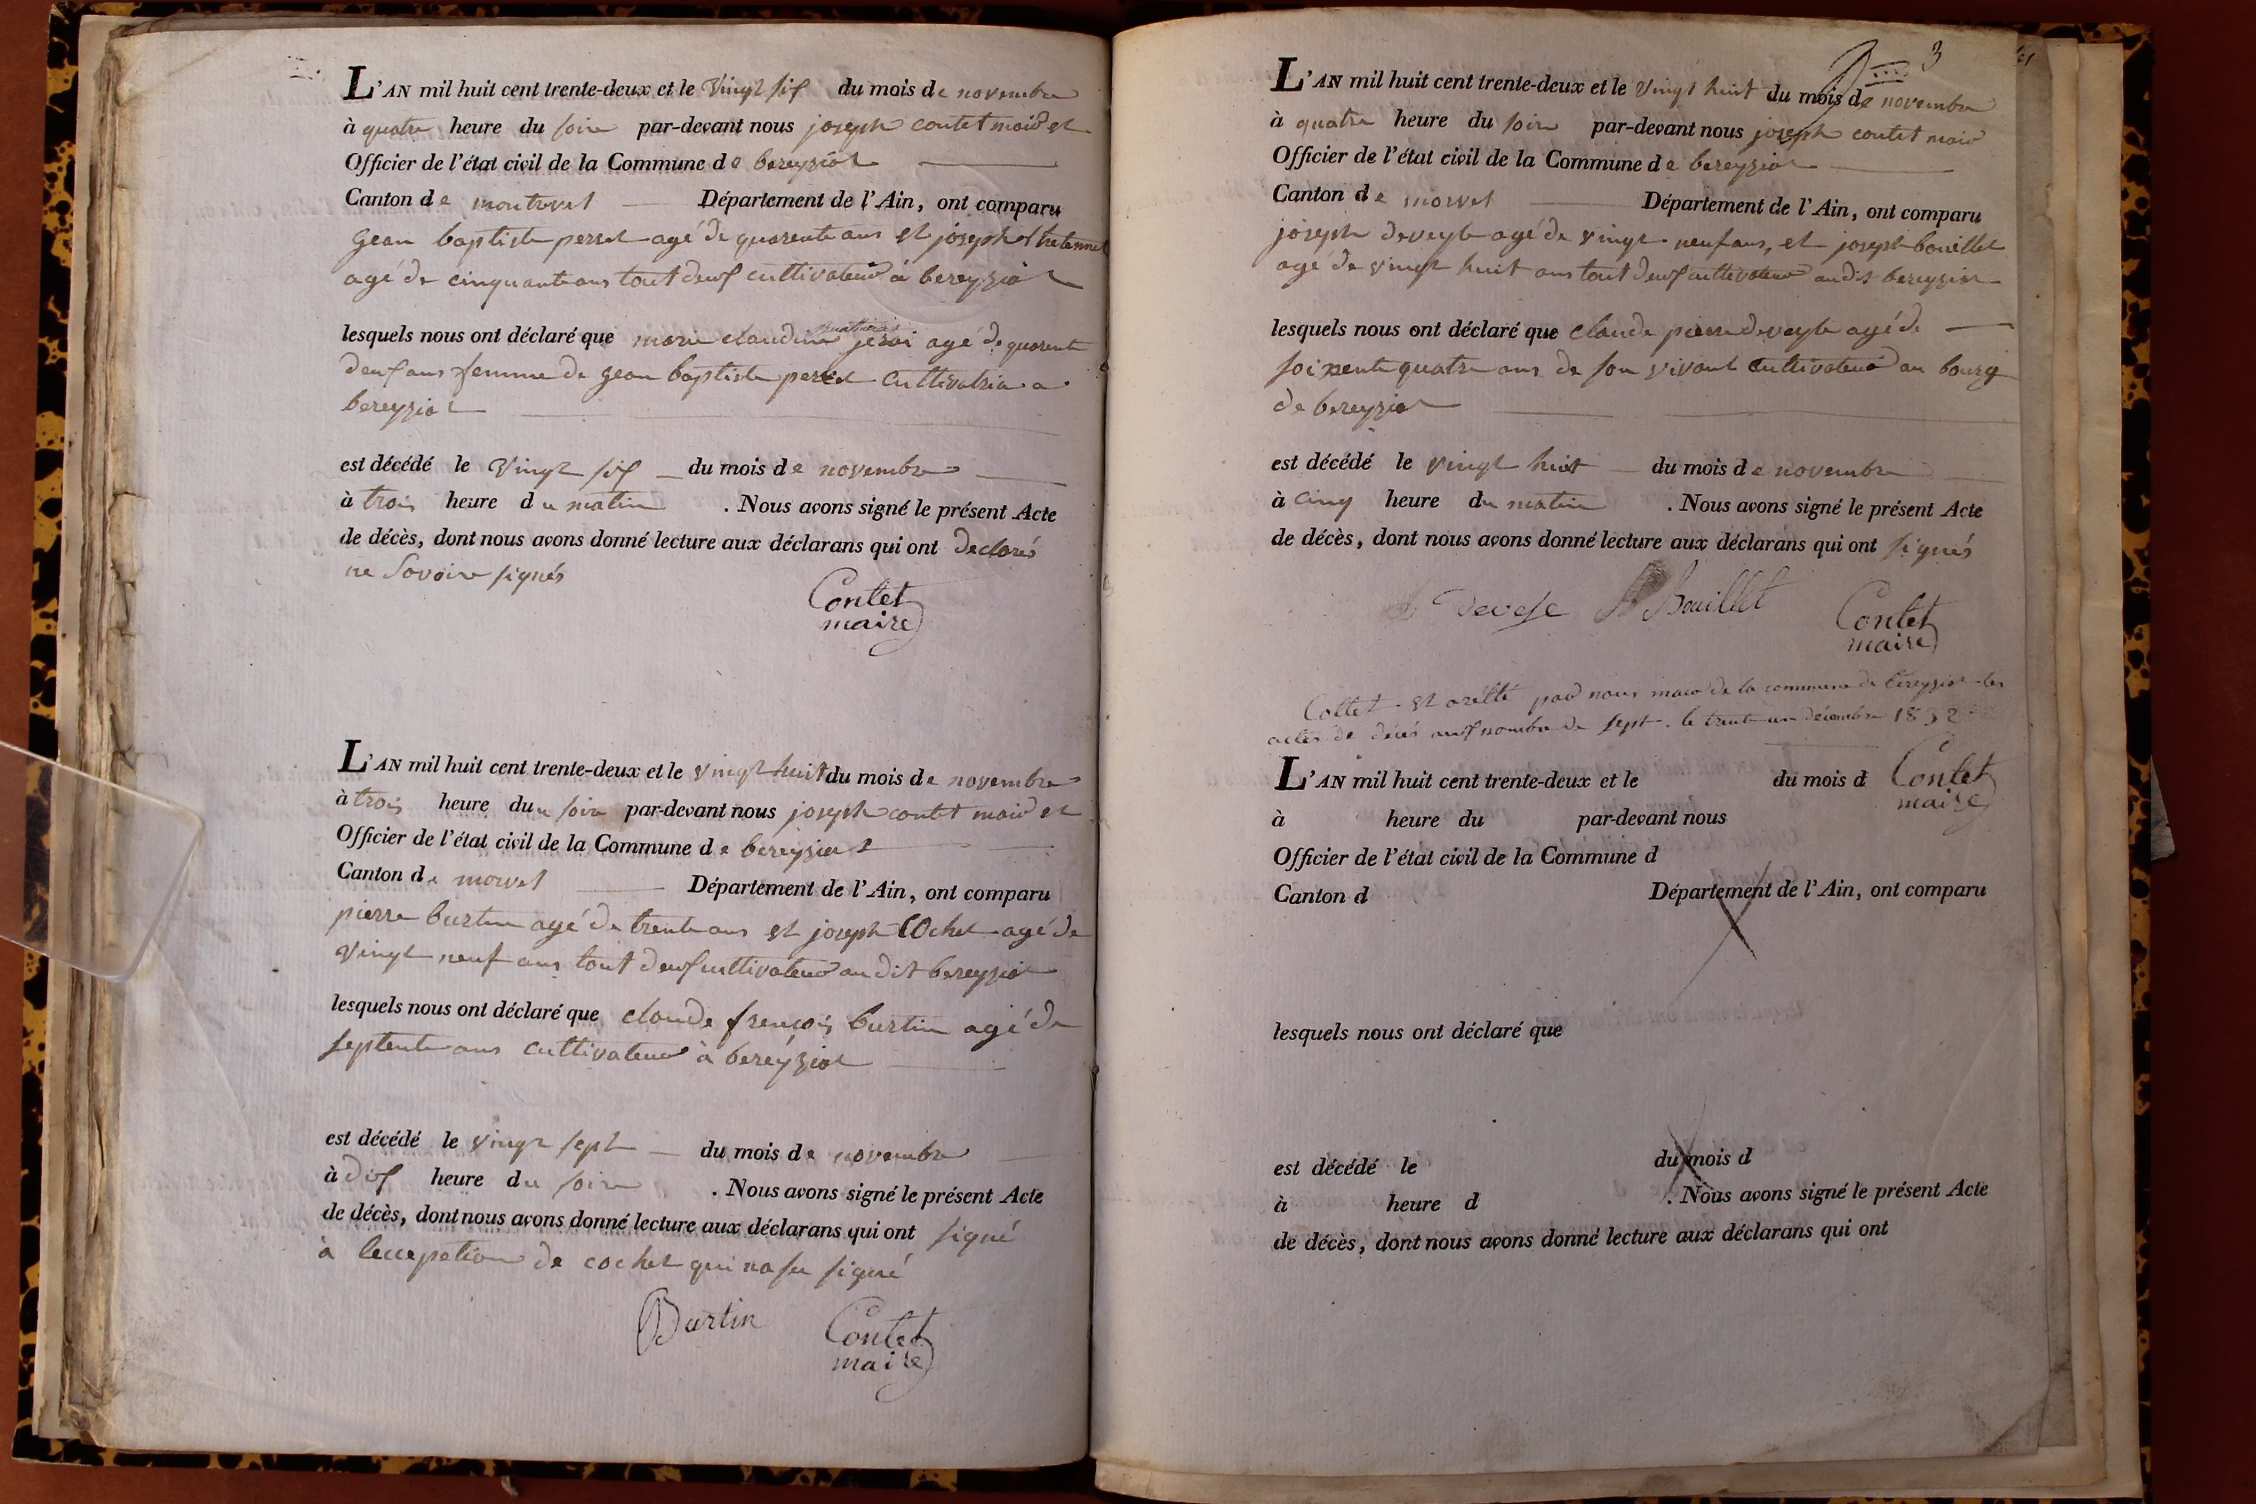 L'AN mil huit cent trente-deux et le vingt sif du mois de novembre
à quatre heure du soire par-devant nous joseph contet maid et
Officier de l'état civil de la Commune de bereyziat
Canton de montrevel Département de l'Ain, ont comparu
gean baptiste perret agé de quarente ans et joseph
agé de cinquante ans tout deuf cultivateur à bereyziat
lesquels nous ont déclaré que marie claudine agé de quarente
deuf ans femme de gean baptiste perret cultivatria a
bereyziat
est décédé le vingt sif du mois de novembre
à trois heure du matin . Nous avons signé le présent Acte
de décès, dont nous avons donné lecture aux déclarans qui ont declarés
ne savoire signés
Contet
maire
L'AN mil huit cent trente-deux et le vingt huit du mois de novembre
à trois heure du soire par-devant nous joseph contet maid et
Officier de l'état civil de la Commune de bereyziat
Canton de Département de l'Ain, ont comparu
pierre burtin agé de trente ans et joseph COchet agé de
vingt neuf ans tout deuf cultivateur au dit bereyziat
lesquels nous ont déclaré que claude françois burtin agé de
septente ans cultivateur à bereyziat
est décédé le vingt sept du mois de novembre
à dif heure du soire . Nous avons signé le présent Acte
de décès, dont nous avons donné lecture aux déclarans qui ont signé
à de cochet qui na su signé
Burtin Contet
maire
3
L'AN mil huit cent trente-deux et le vingt huit du mois de novembre
à quatre heure du soire par-devant nous joseph contet maid
Officier de l'état civil de la Commune de bereyziat
Canton de Département de l'Ain, ont comparu
joseph deveyle agé de vingt-neuf ans, et joseph bouillet
agé de vingt huit ans tout deuf cultivateur au dit bereyziat
lesquels nous ont déclaré que claude pierre deveyle agé de
soixente quatre ans de son vivant cultivateur au bourg
de bereyziat
est décédé le vingt huit du mois de novembre
à cinq heure du matin . Nous avons signé le présent Acte
de décès, dont nous avons donné lecture aux déclarans qui ont signés
Bouillet Contet
maire
et par nous de la commune de bereyziat les
actes de décès de sept. le trente un décembre 1832
L'AN mil huit cent trente-deux et le du mois d Contet
maire
à heure du par-devant nous
Officier de l'état civil de la Commune d
Canton d Département de l'Ain, ont comparu
lesquels nous ont déclaré que
est décédé le du mois d
à heure d . Nous avons signé le présent Acte
de décès, dont nous avons donné lecture aux déclarans qui ont